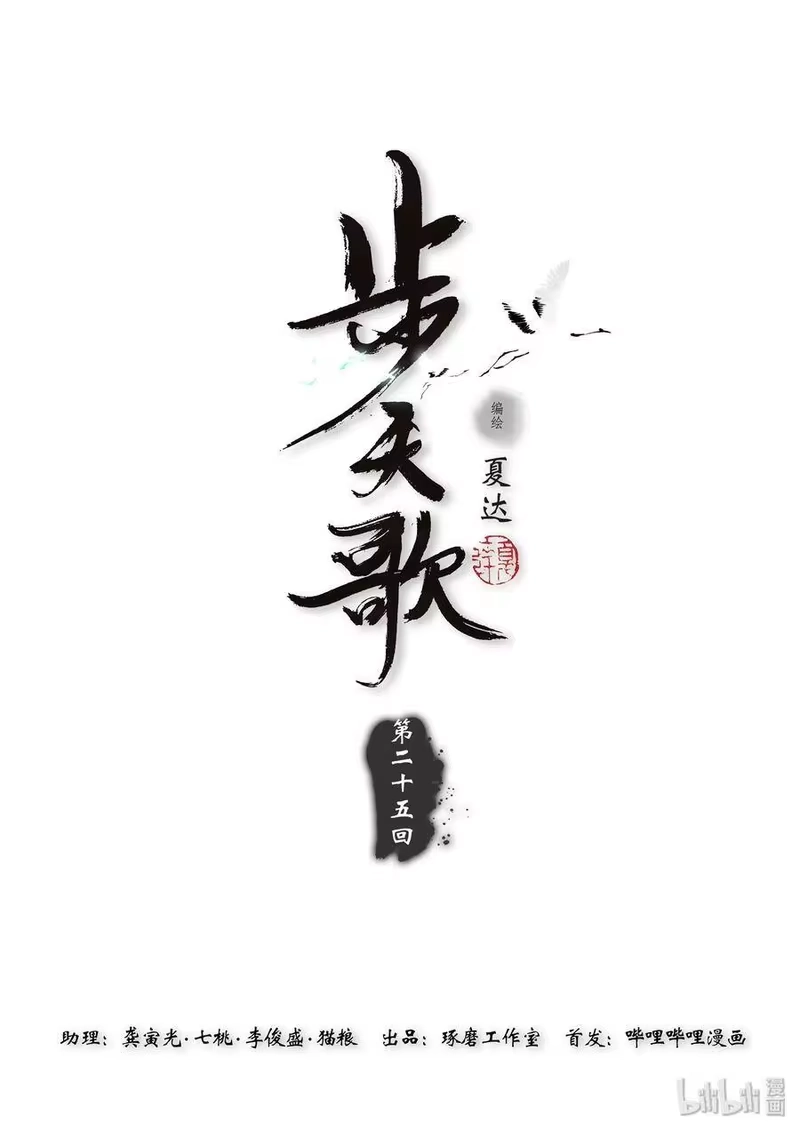 步天歌
编绘
夏达
夏达
第二十五回
助理：龚寅光·七桃·李俊盛·猫粮 出品：琢磨工作室 首发：哔哩哔哩漫画
bilibili 漫画